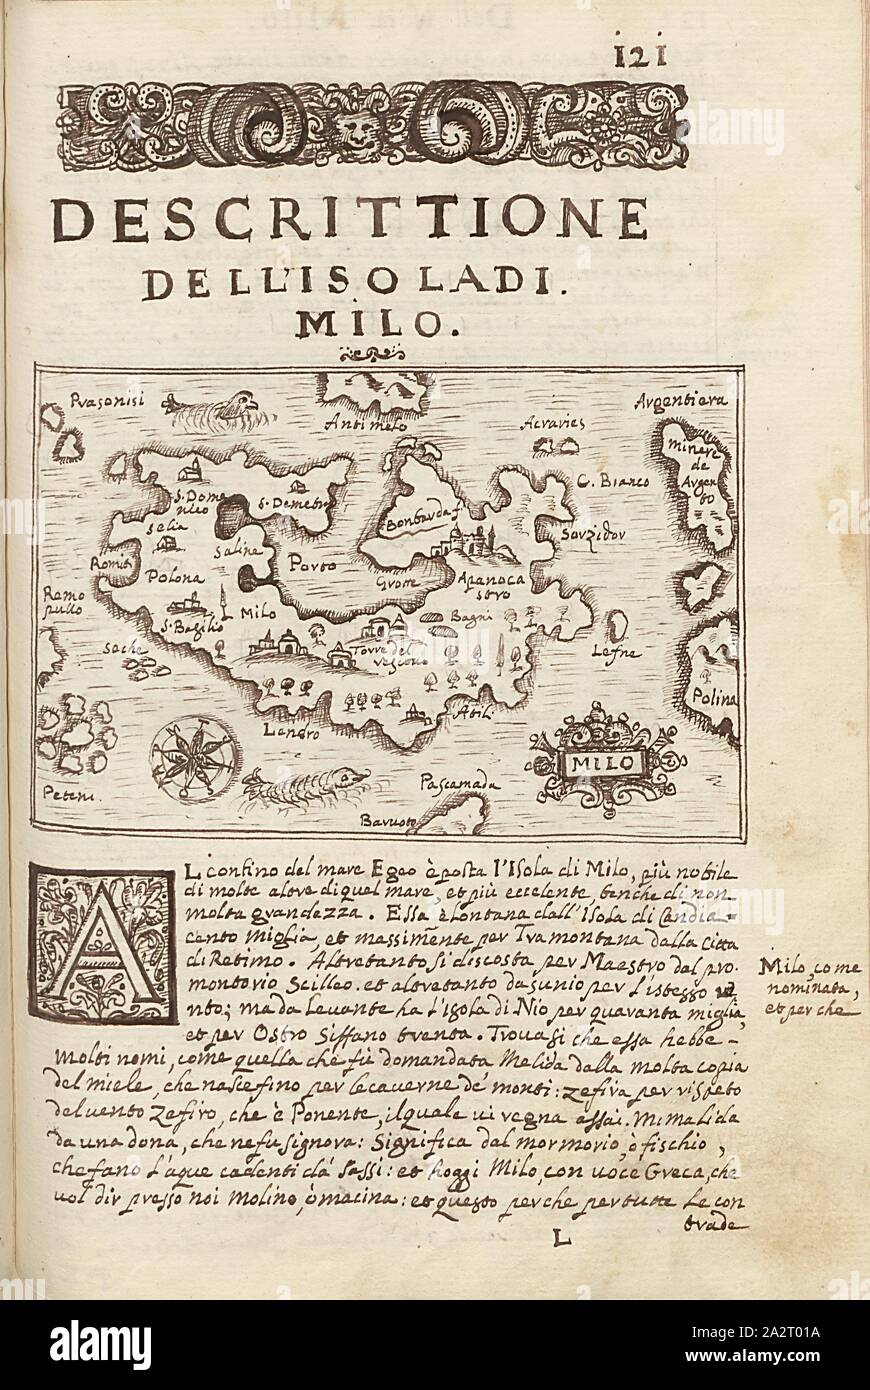 121
DESCRITTIONE
DELL'ISOLA DI.
MILO.
Prasonisi
Antimelo
Acraries
Argentiera
minere de Argento
C. Bianco
S. Domenico
S. Demetrio
Bonbarda f.
Selia
Saline
Sarzidor
Romiti
Polona
Porto
Grotte
Apanocastro
Remopullo
S. Basilio
Milo
Bagni
Torre del vescouo
Seche
Lefne
Polina
Landro
Atili
MILO
Peteni.
Pascamada
Baruoto
AL confino del mare Egeo è posta l'Isola di Milo, più nobile
di molte altre di quel mare, et più eccelente, benche di non
molta grandezza. Essa è lontana dall'Isola di Candia
cento miglia, et massimente per Tramontana dalla Citta
di Retimo. Altretanto si discosta per Maestro dal pro-
montorio Scilleo. et altretanto da sunio per l'istezzo
nto; ma da Leuante ha l'isola di Nio per quaranta miglia,
et per Ostro Siffano trenta. Trouasi che essa hebbe
Molti nomi, come quella che fù domandata Melida dalla molta copia
del miele, che nasce fino per le cauerne de' monti: zefira per rispeto
del uento Zefiro, che è Ponente, il quale ui regna assai. Mimalida
da una dona, che ne fu signora: Significa dal mormorio, ò fischio,
che fano l'aque cadenti dà sassi: et hoggi Milo, con uoce Greca, che
uol dir presso noi Molino, ò macina: et questo perche per tutte le con
trade
L
Milo, come
nominata,
et perche
alamy
Image ID: 2A2T01A
www.alamy.com